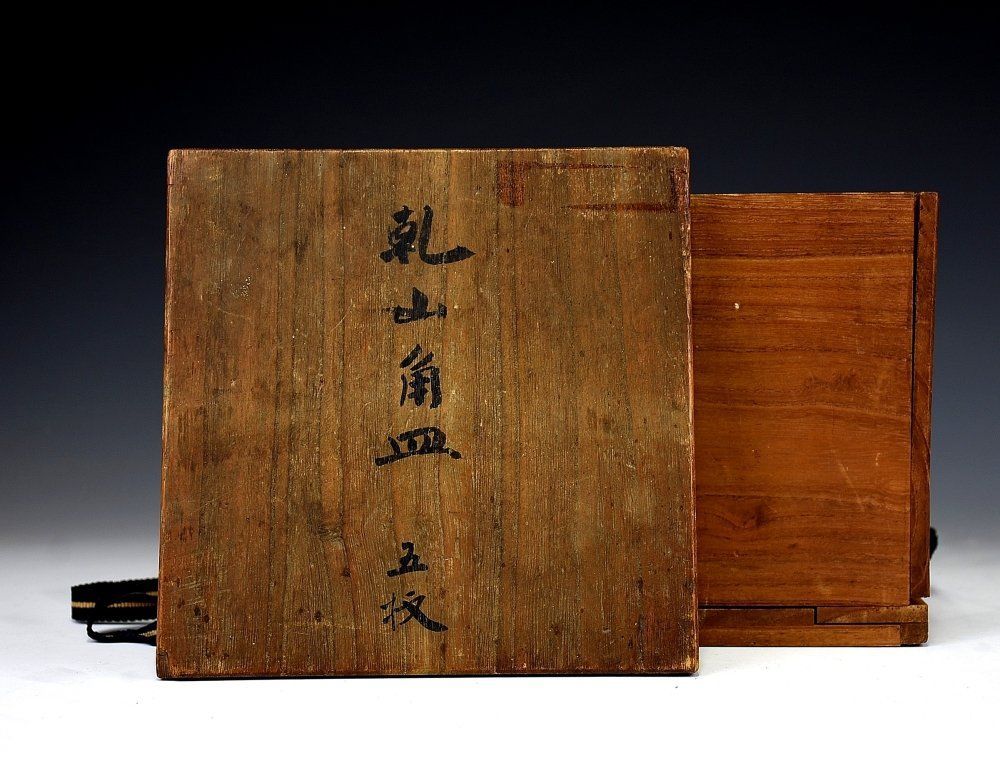 乾山角皿 五枚